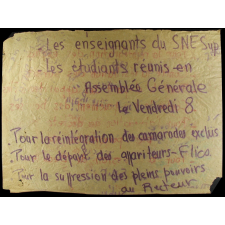 - Les enseignants du SNESup
- Les étudiants réunis en
Assemblée Générale
Le Vendredi 8
- Pour la réintégration des camarades exclus
- Pour le départ des appariteurs-Flics
- Pour la suppression des pleins pouvoirs
au Recteur